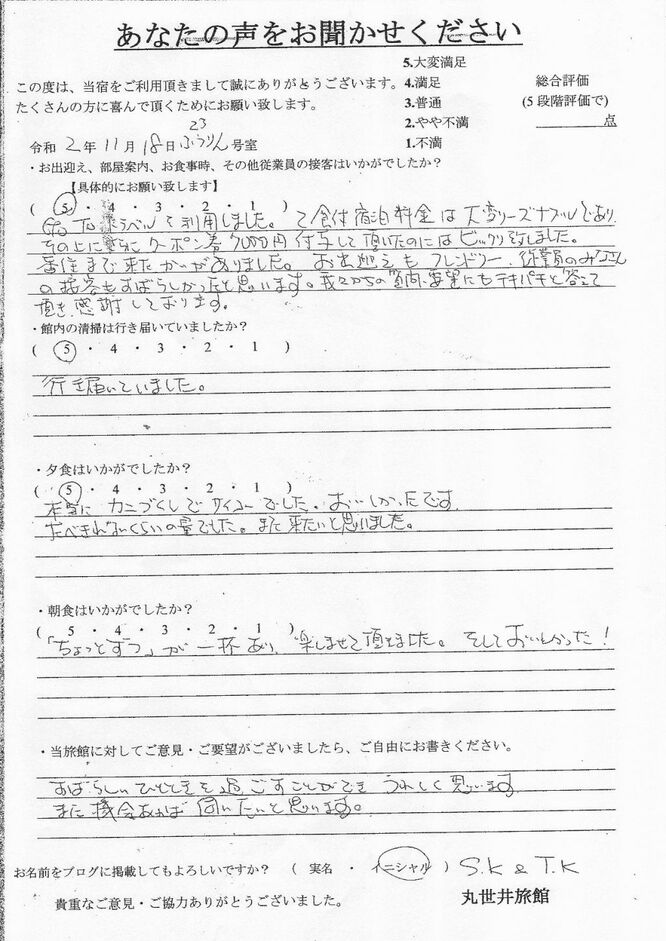 あなたの声をお聞かせください
この度は、当宿をご利用頂きまして誠にありがとうございます。
たくさんの方に喜んで頂くためにお願い致します。
5.大変満足
4.満足
3.普通
2.やや不満
1.不満
総合評価
(5段階評価で)
点
23
令和 2 年 11 月 18 日 ふうりん 号室
・お出迎え、部屋案内、お食事時、その他従業員の接客はいかがでしたか？
【具体的にお願い致します】
( 5 ・ 4 ・ 3 ・ 2 ・ 1 )
Go To トラベルを利用しました。2食付宿泊料金は大変リーズナブルであり、
その上に更にクーポン券7000円付与して頂いたのにはビックリ致しました。
香住まで来たかいがありました。お出迎えもフレンドリー、従業員のみなさん
の接客もすばらしかったと思います。我々からの質問、要望にもテキパキと答えて
頂き、感謝しております。
・館内の清掃は行き届いていましたか？
( 5 ・ 4 ・ 3 ・ 2 ・ 1 )
行き届いていました。
・夕食はいかがでしたか？
( 5 ・ 4 ・ 3 ・ 2 ・ 1 )
本当にカニづくしでサイコーでした。おいしかったです。
たべきれないくらいの量でした。また来たいと思いました。
・朝食はいかがでしたか？
( 5 ・ 4 ・ 3 ・ 2 ・ 1 )
「ちょっとずつ」が一杯あり、楽しませて頂きました。そしておいしかった！
・当旅館に対してご意見・ご要望がございましたら、ご自由にお書きください。
すばらしいひとときを過ごすことができうれしく思います
また機会あれば伺いたいと思います。
お名前をブログに掲載してもよろしいですか？ ( 実名 ・ イニシャル ) S.K & T.K
貴重なご意見・ご協力ありがとうございました。
丸世井旅館